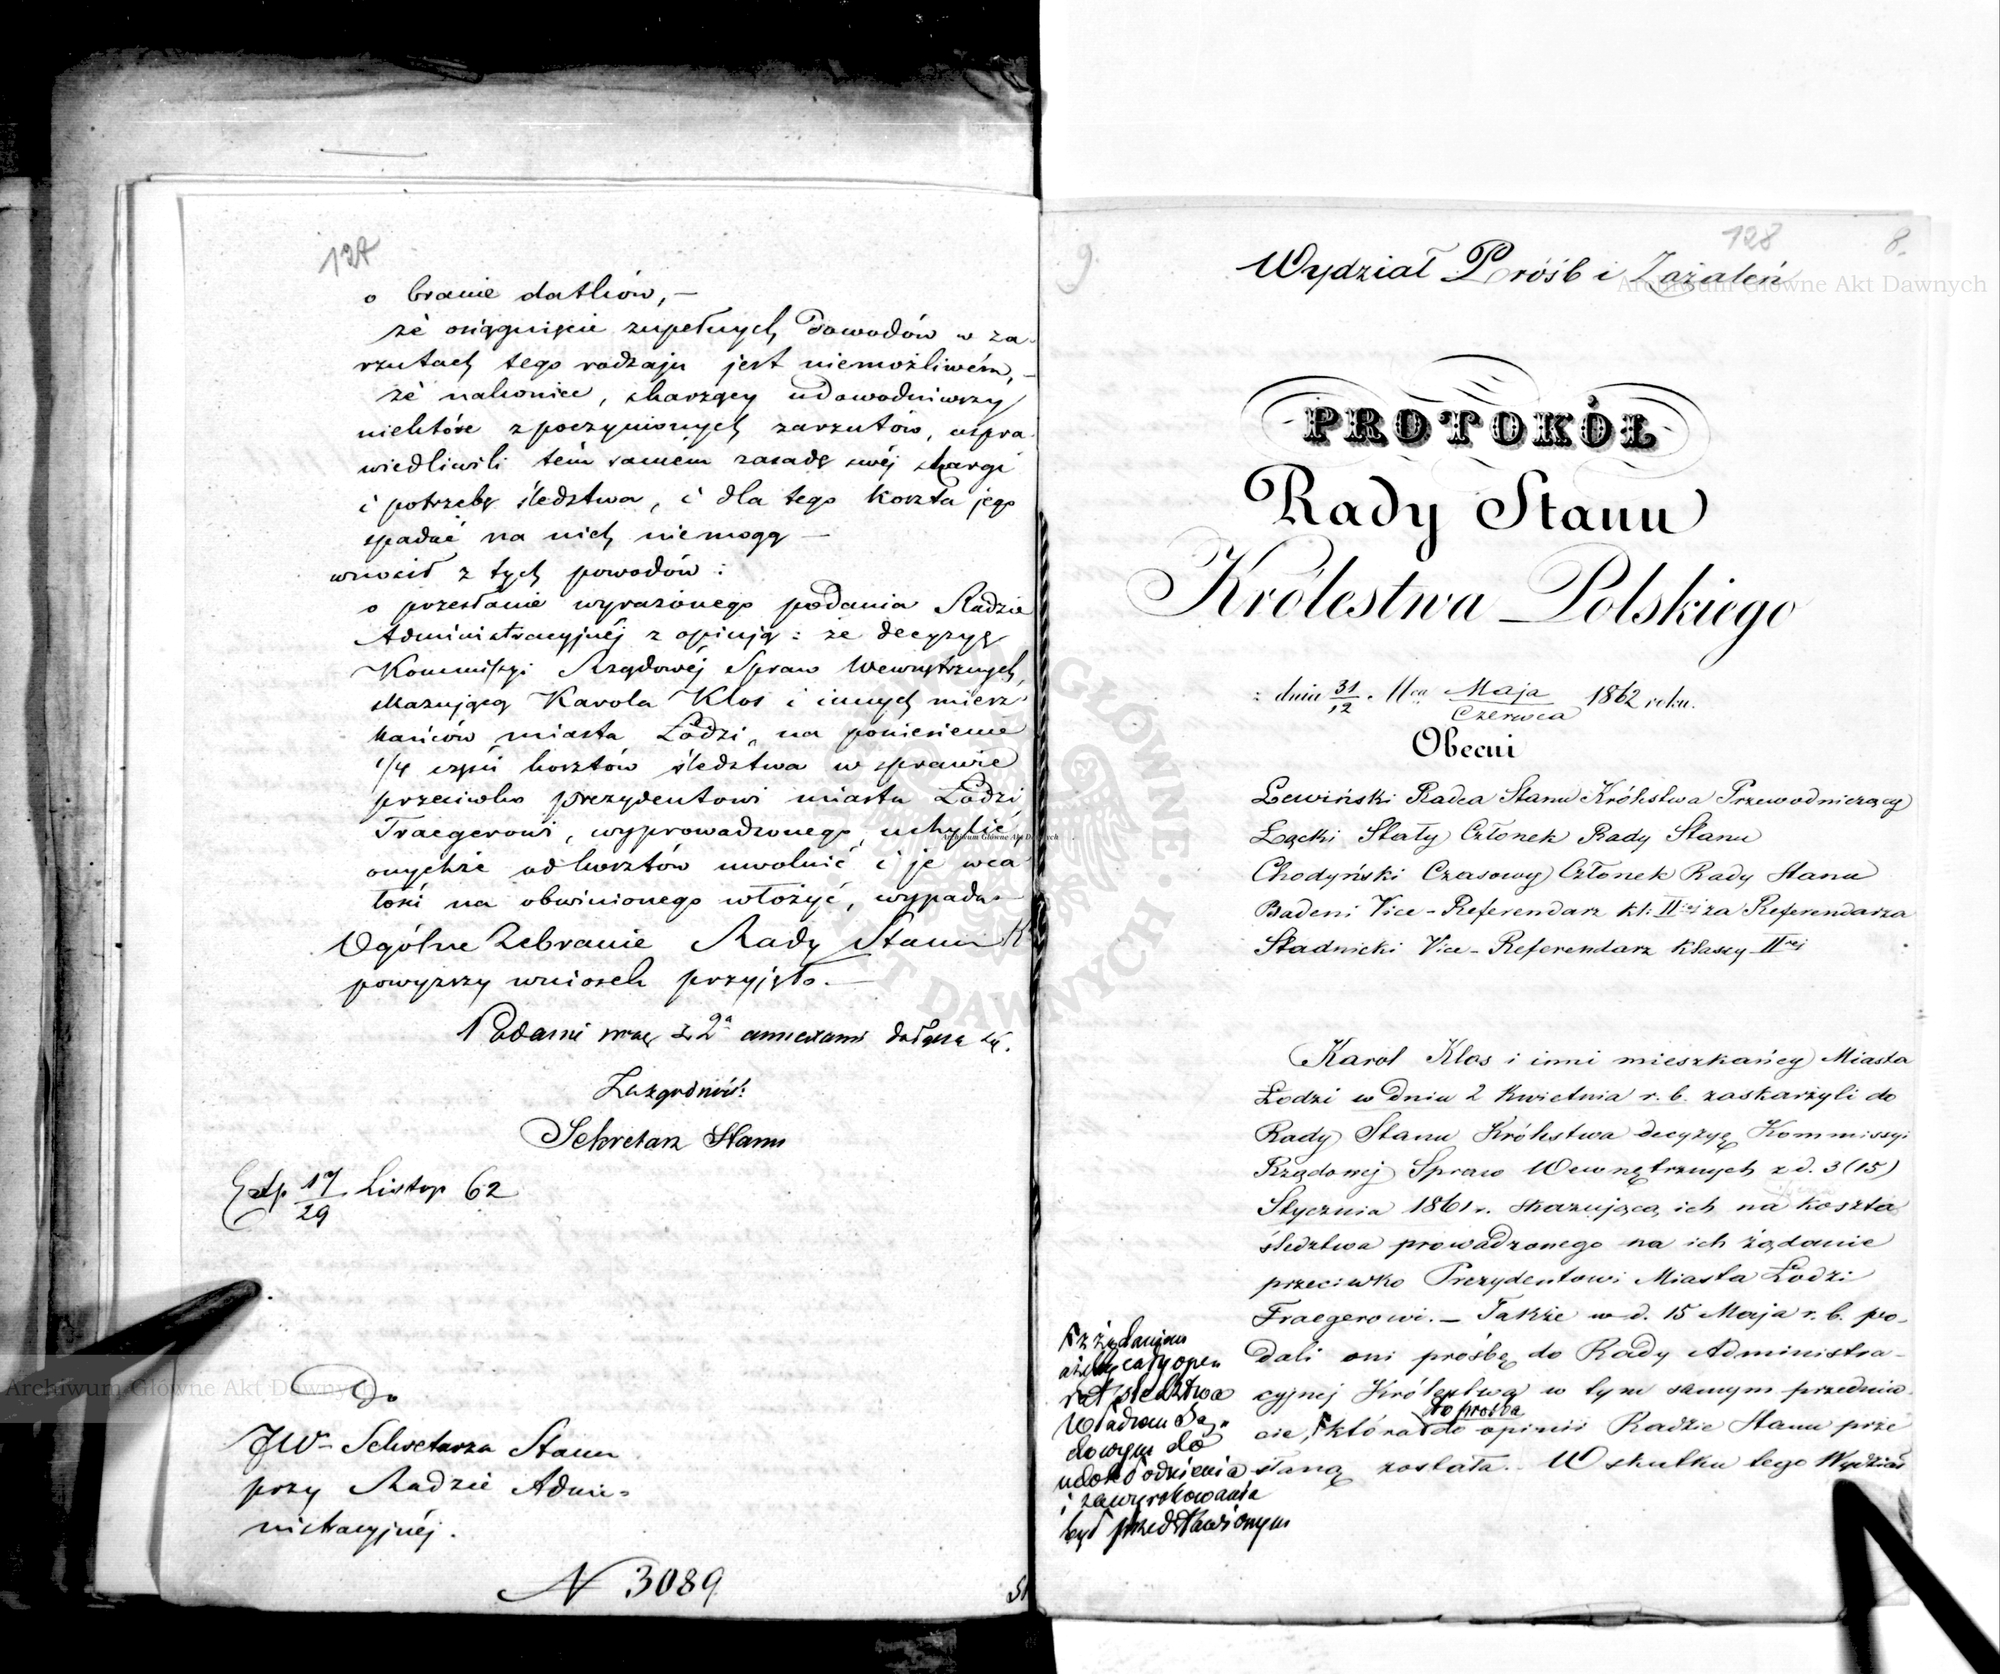 127
o branie datków, —
że osiągnięcie zupełnych dowodów w za-
rzutach tego rodzaju jest niemożliwém, —
że nakoniec, skarżący udowodniwszy
niektóre z poczynionych zarzutów, uspra-
wiedliwili tém samém zasadę swéj skargi
i potrzebę śledztwa, i dla tego koszta jego
spadać na nich niemogą —
wnosił z tych powodów:
o przesłanie wyrażonego podania Radzie
Administracyjnéj z opinią: że decyzyę
Kommissyi Rządowéj Spraw Wewnętrznych,
skazującą Karola Klos i innych miesz-
kańców miasta Łodzi, na poniesienie
1/4 części kosztów śledztwa w sprawie
przeciwko prezydentowi miasta Łodzi
Traegerowi, wyprowadzonego, uchylić,
onychże od kosztów uwolnić i je wca-
łości na obwinionego włożyć, wypada. —
Ogólne Zebranie Rady Stanu K
powyższy wniosek przyjęło. —
Podanie wraz z 2a annexami dołącza się.
Za zgodność:
Sekretarz Stanu
Exp. 17/29 Listop 62
Do
JW- Sekretarza Stanu
przy Radzie Admi-
nistracyjnéj.
N 3089
9.
128
8.
Wydział Próśb i Zażaleń
PROTOKÓŁ
Rady Stanu
Królestwa Polskiego
z dnia 31/12 Mca Maja/Czerwca 1862 roku.
Obecni
Lewiński Radca Stanu Królestwa Przewodniczący
Łącki Stały Członek Rady Stanu
Chodyński Czasowy Członek Rady Stanu
Badeni Vice-Referendarz kl: IIiej za Referendarza
Stadnicki Vice-Referendarz Klassy IIiej
Karol Klos i inni mieszkańcy Miasta
Łodzi w dniu 2 Kwietnia r. b. zaskarżyli do
Rady Stanu Królestwa decyzyę Kommissyi
Rządowej Spraw Wewnętrznych z d. 3 (15)
Stycznia 1861 r. skazującą ich na koszta
śledztwa prowadzonego na ich żądanie
przeciwko Prezydentowi Miasta Łodzi
Fraegerowi. — Także w d. 15 Maja r. b. po-
dali oni prośbę do Rady Administra-
cyjnej Królestwa w tym samym przedmio-
cie, która to prośba do opinii Radzie Stanu prze
słaną została. W skutku tego Wydział
z żądaniem
ażeby cały ope-
rat śledztwa
Władzom Są-
dowym do
udokładnienia
i zawyrokowania
był przedstawionym
Archiwum Główne Akt Dawnych
Archiwum Główne Akt Dawnych
Archiwum Główne Akt Dawnych